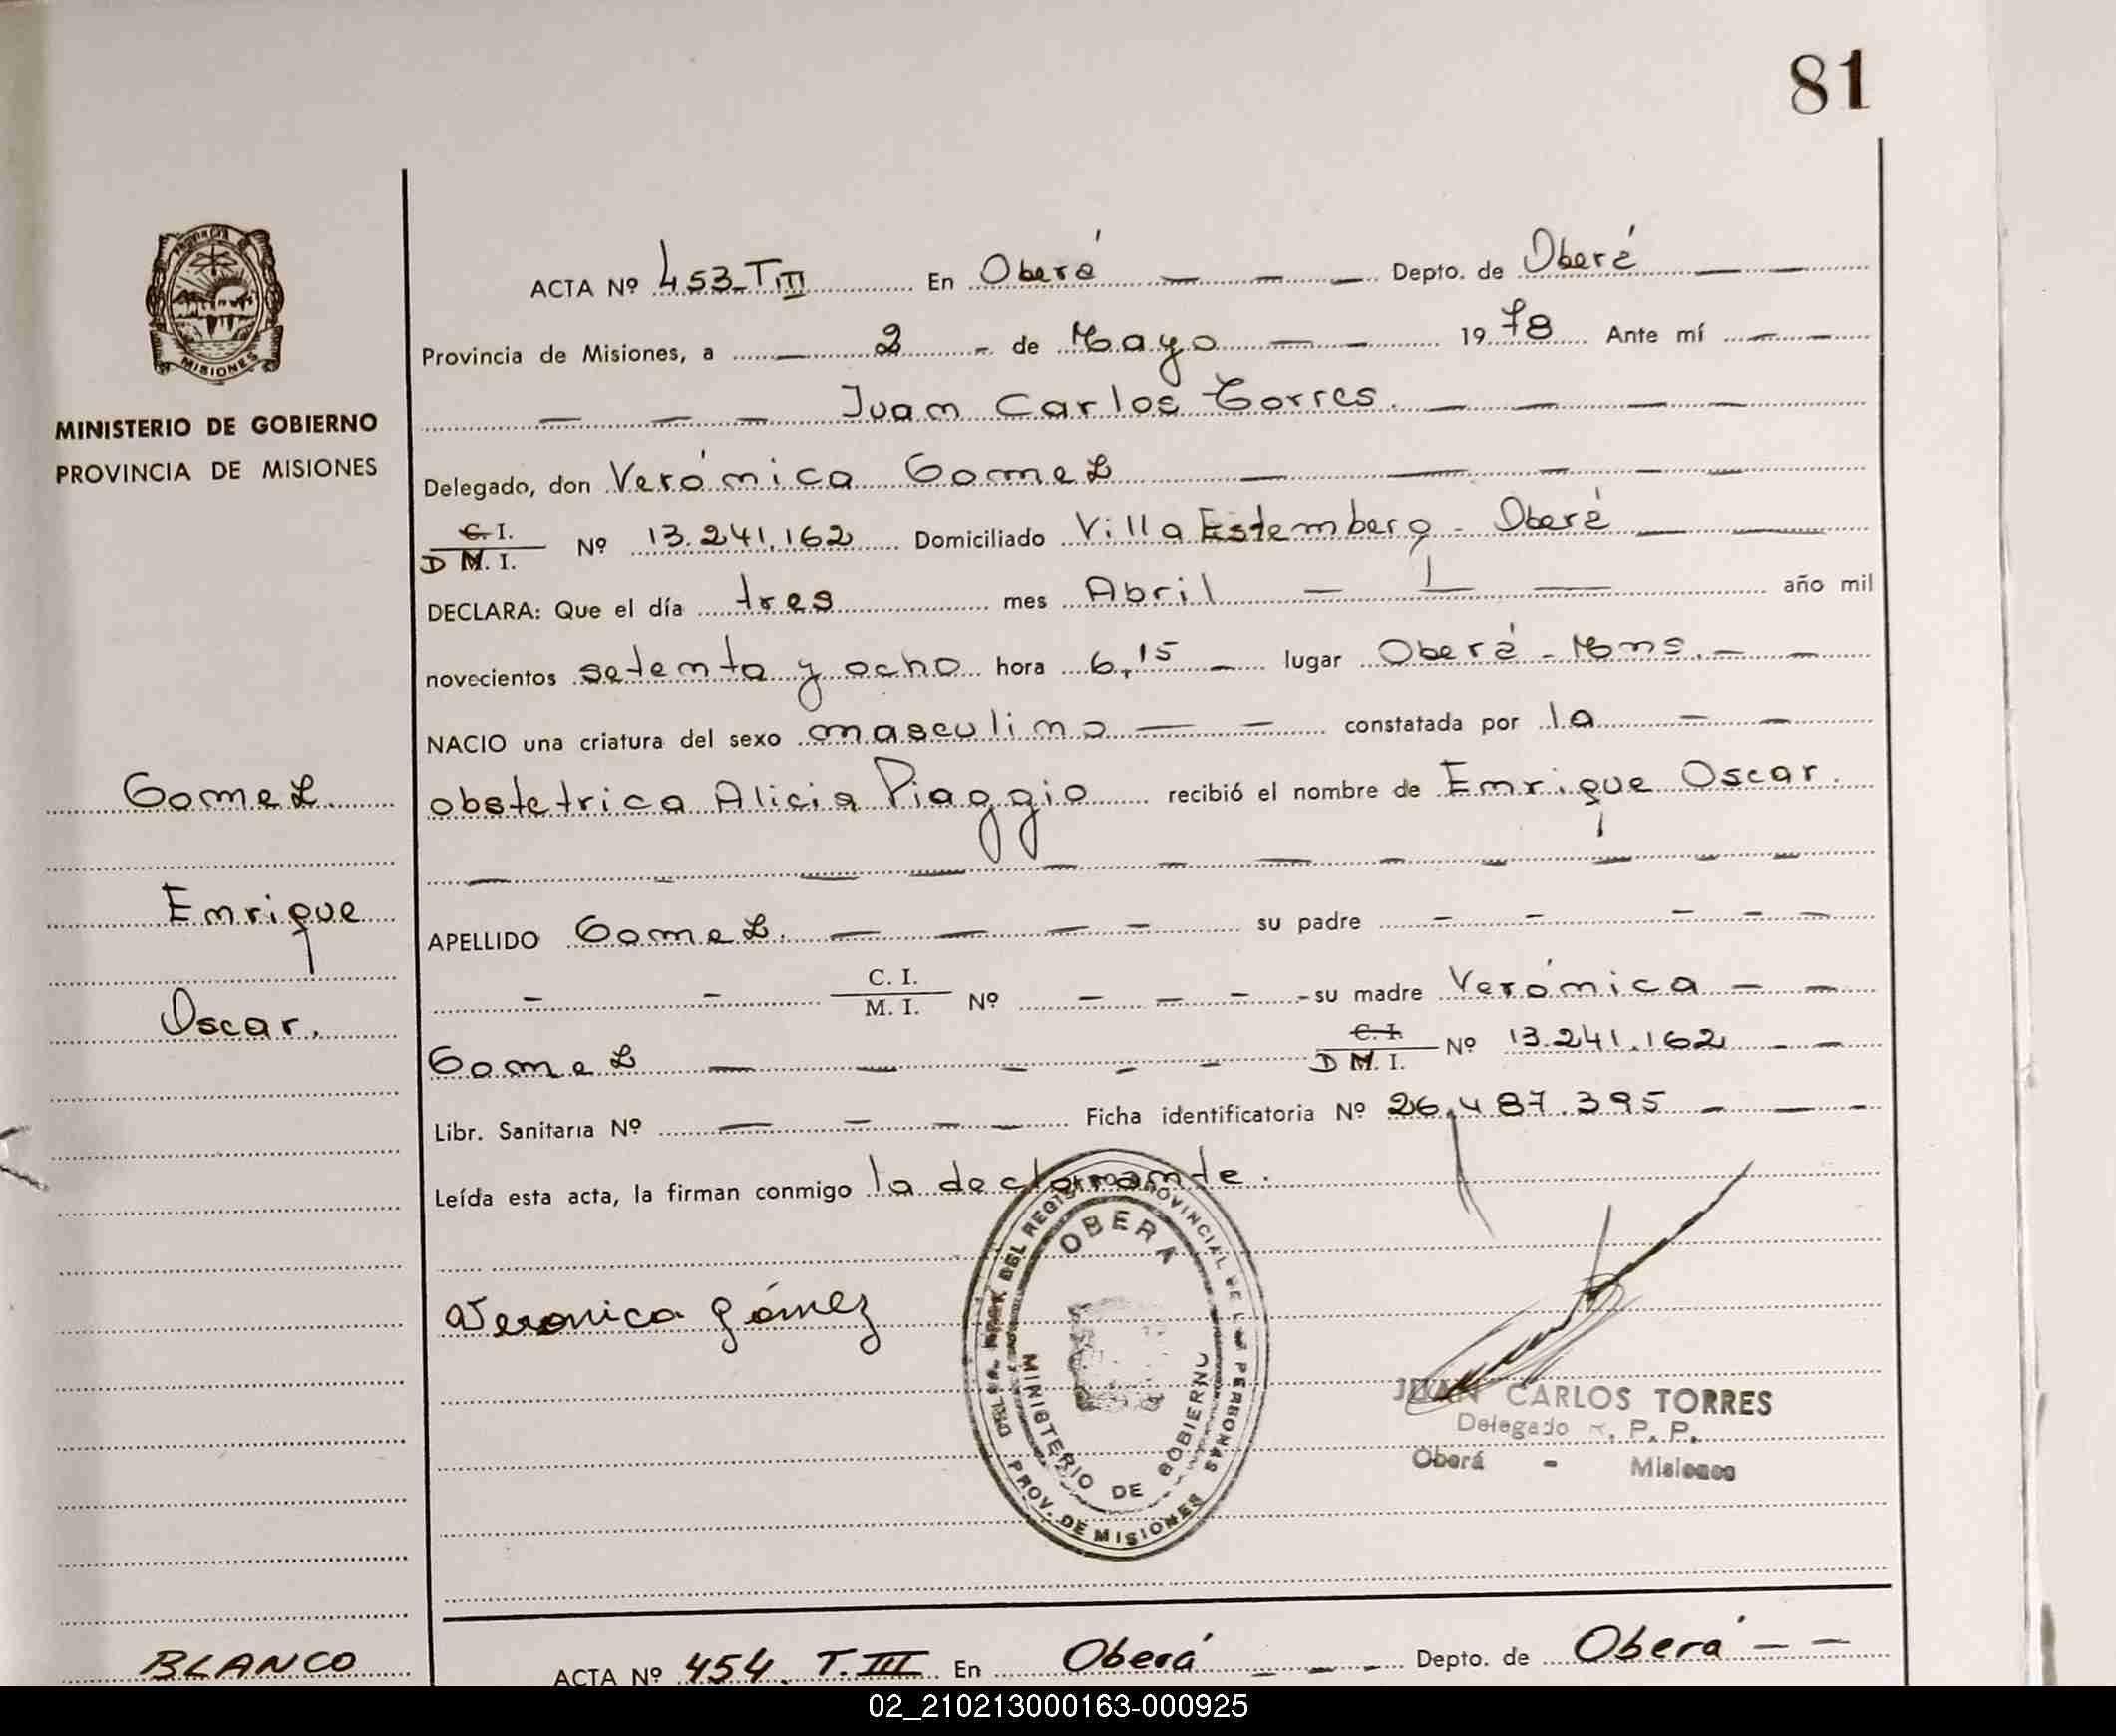 81
ACTA Nº 453_TIII En Oberá — — — Depto. de Oberá — —
Provincia de Misiones, a — 2 - de Mayo — — 1978 Ante mí — —
— — — Juan Carlos Torres. — — — —
Delegado, don Verónica Gomez — — — —
C. I.
D M. I. Nº 13.241.162 Domiciliado Villa Estemberg - Oberá — —
DECLARA: Que el día tres mes Abril — — — año mil
novecientos setenta y ocho hora 6,15 — lugar Oberá - Mns. — —
NACIO una criatura del sexo masculino — — constatada por la — —
obstetrica Alicia Piaggio recibió el nombre de Enrique Oscar.
— — — — — — — — — — —
APELLIDO Gomez. — — — — su padre — — — — —
— — C. I.
M. I. Nº — — — - su madre Verónica — —
Gomez — — — — — C. I.
D M. I. Nº 13.241.162 — —
Libr. Sanitaria Nº — — — — Ficha identificatoria Nº 26.487.395 — — —
Leída esta acta, la firman conmigo la declarante.
Veronica Gómez
MINISTERIO DE GOBIERNO
PROVINCIA DE MISIONES
MISIONES
Gomez.
Enrique
Oscar.
OBERA
MINISTERIO DE GOBIERNO
DEL REGISTRO PROVINCIAL DE LAS PERSONAS
PROV. DE MISIONES
JUAN CARLOS TORRES
Delegado R. P. P.
Oberá - Misiones
BLANCO
ACTA Nº 454. T. III En Oberá — — — Depto. de Oberá — —
02_210213000163-000925